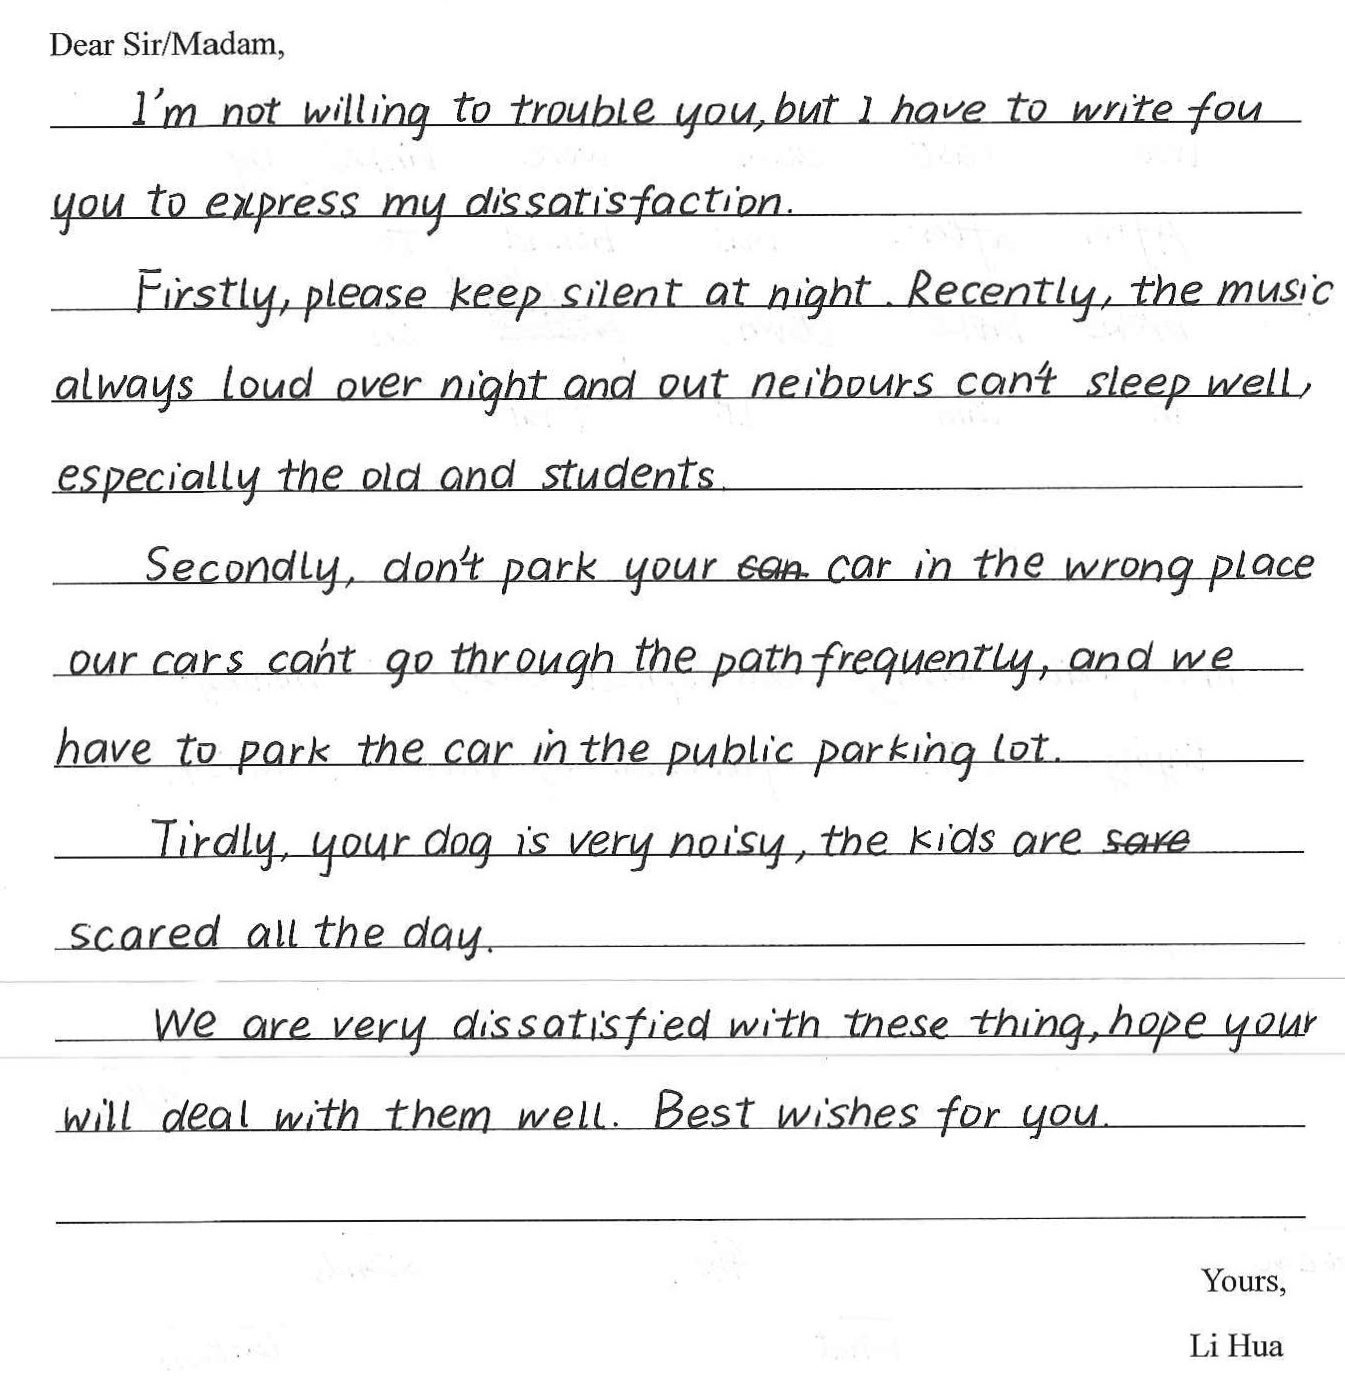 Dear Sir/Madam,
I'm not willing to trouble you, but I have to write fou
you to express my dissatisfaction.
Firstly, please keep silent at night. Recently, the music
always loud over night and out neibours can't sleep well,
especially the old and students.
Secondly, don't park your can car in the wrong place
our cars can't go through the path frequently, and we
have to park the car in the public parking lot.
Tirdly, your dog is very noisy, the kids are sare
scared all the day.
We are very dissatisfied with these thing, hope your
will deal with them well. Best wishes for you.
Yours,
Li Hua